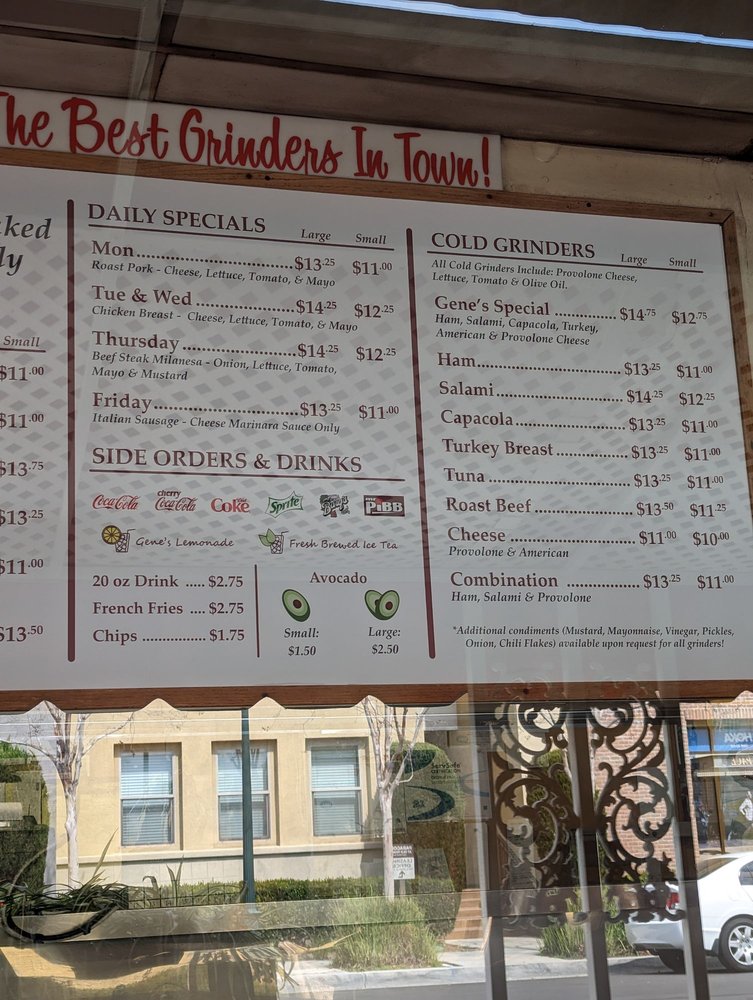 The Best Grinders In Town!
Small
$11.00
$11.00
$13.75
$13.25
$11.00
$13.50
DAILY SPECIALS Large Small
Mon $13.25 $11.00
Roast Pork - Cheese, Lettuce, Tomato, & Mayo
Tue & Wed $14.25 $12.25
Chicken Breast - Cheese, Lettuce, Tomato, & Mayo
Thursday $14.25 $12.25
Beef Steak Milanesa - Onion, Lettuce, Tomato,
Mayo & Mustard
Friday $13.25 $11.00
Italian Sausage - Cheese Marinara Sauce Only
SIDE ORDERS & DRINKS
Coca-Cola cherry Coca-Cola Diet Coke Sprite PiBB
Gene's Lemonade Fresh Brewed Ice Tea
20 oz Drink ..... $2.75
French Fries .... $2.75
Chips .............. $1.75
Avocado
Small: Large:
$1.50 $2.50
COLD GRINDERS Large Small
All Cold Grinders Include: Provolone Cheese,
Lettuce, Tomato & Olive Oil.
Gene's Special $14.75 $12.75
Ham, Salami, Capacola, Turkey,
American & Provolone Cheese
Ham $13.25 $11.00
Salami $14.25 $12.25
Capacola $13.25 $11.00
Turkey Breast $13.25 $11.00
Tuna $13.25 $11.00
Roast Beef $13.50 $11.25
Cheese $11.00 $10.00
Provolone & American
Combination $13.25 $11.00
Ham, Salami & Provolone
*Additional condiments (Mustard, Mayonnaise, Vinegar, Pickles,
Onion, Chili Flakes) available upon request for all grinders!